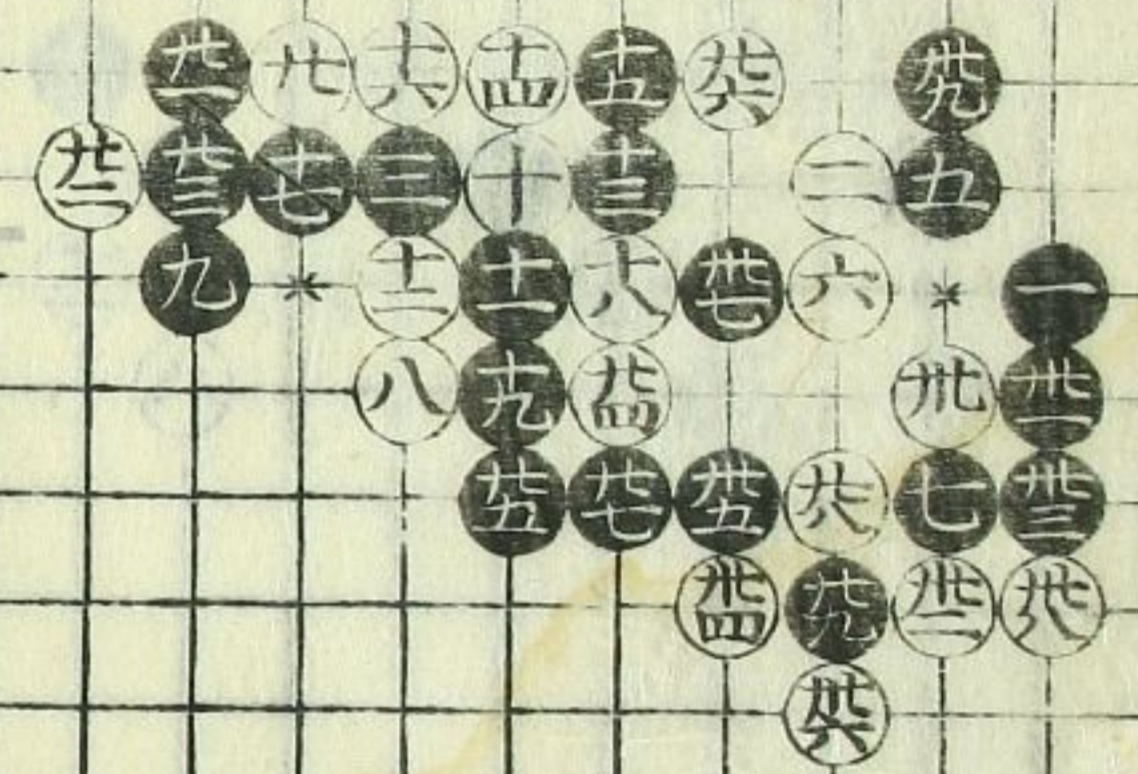 廿一 廿 十六 十四 十五 廿六 卅九
廿二 廿三 十七 三 十 十三 二 五
九 十二 十一 十八 卅七 六 一
八 十九 廿四 卅 卅一
廿五 廿七 卅五 廿八 七 卅三
卅四 廿九 卅二 卅八
卅六